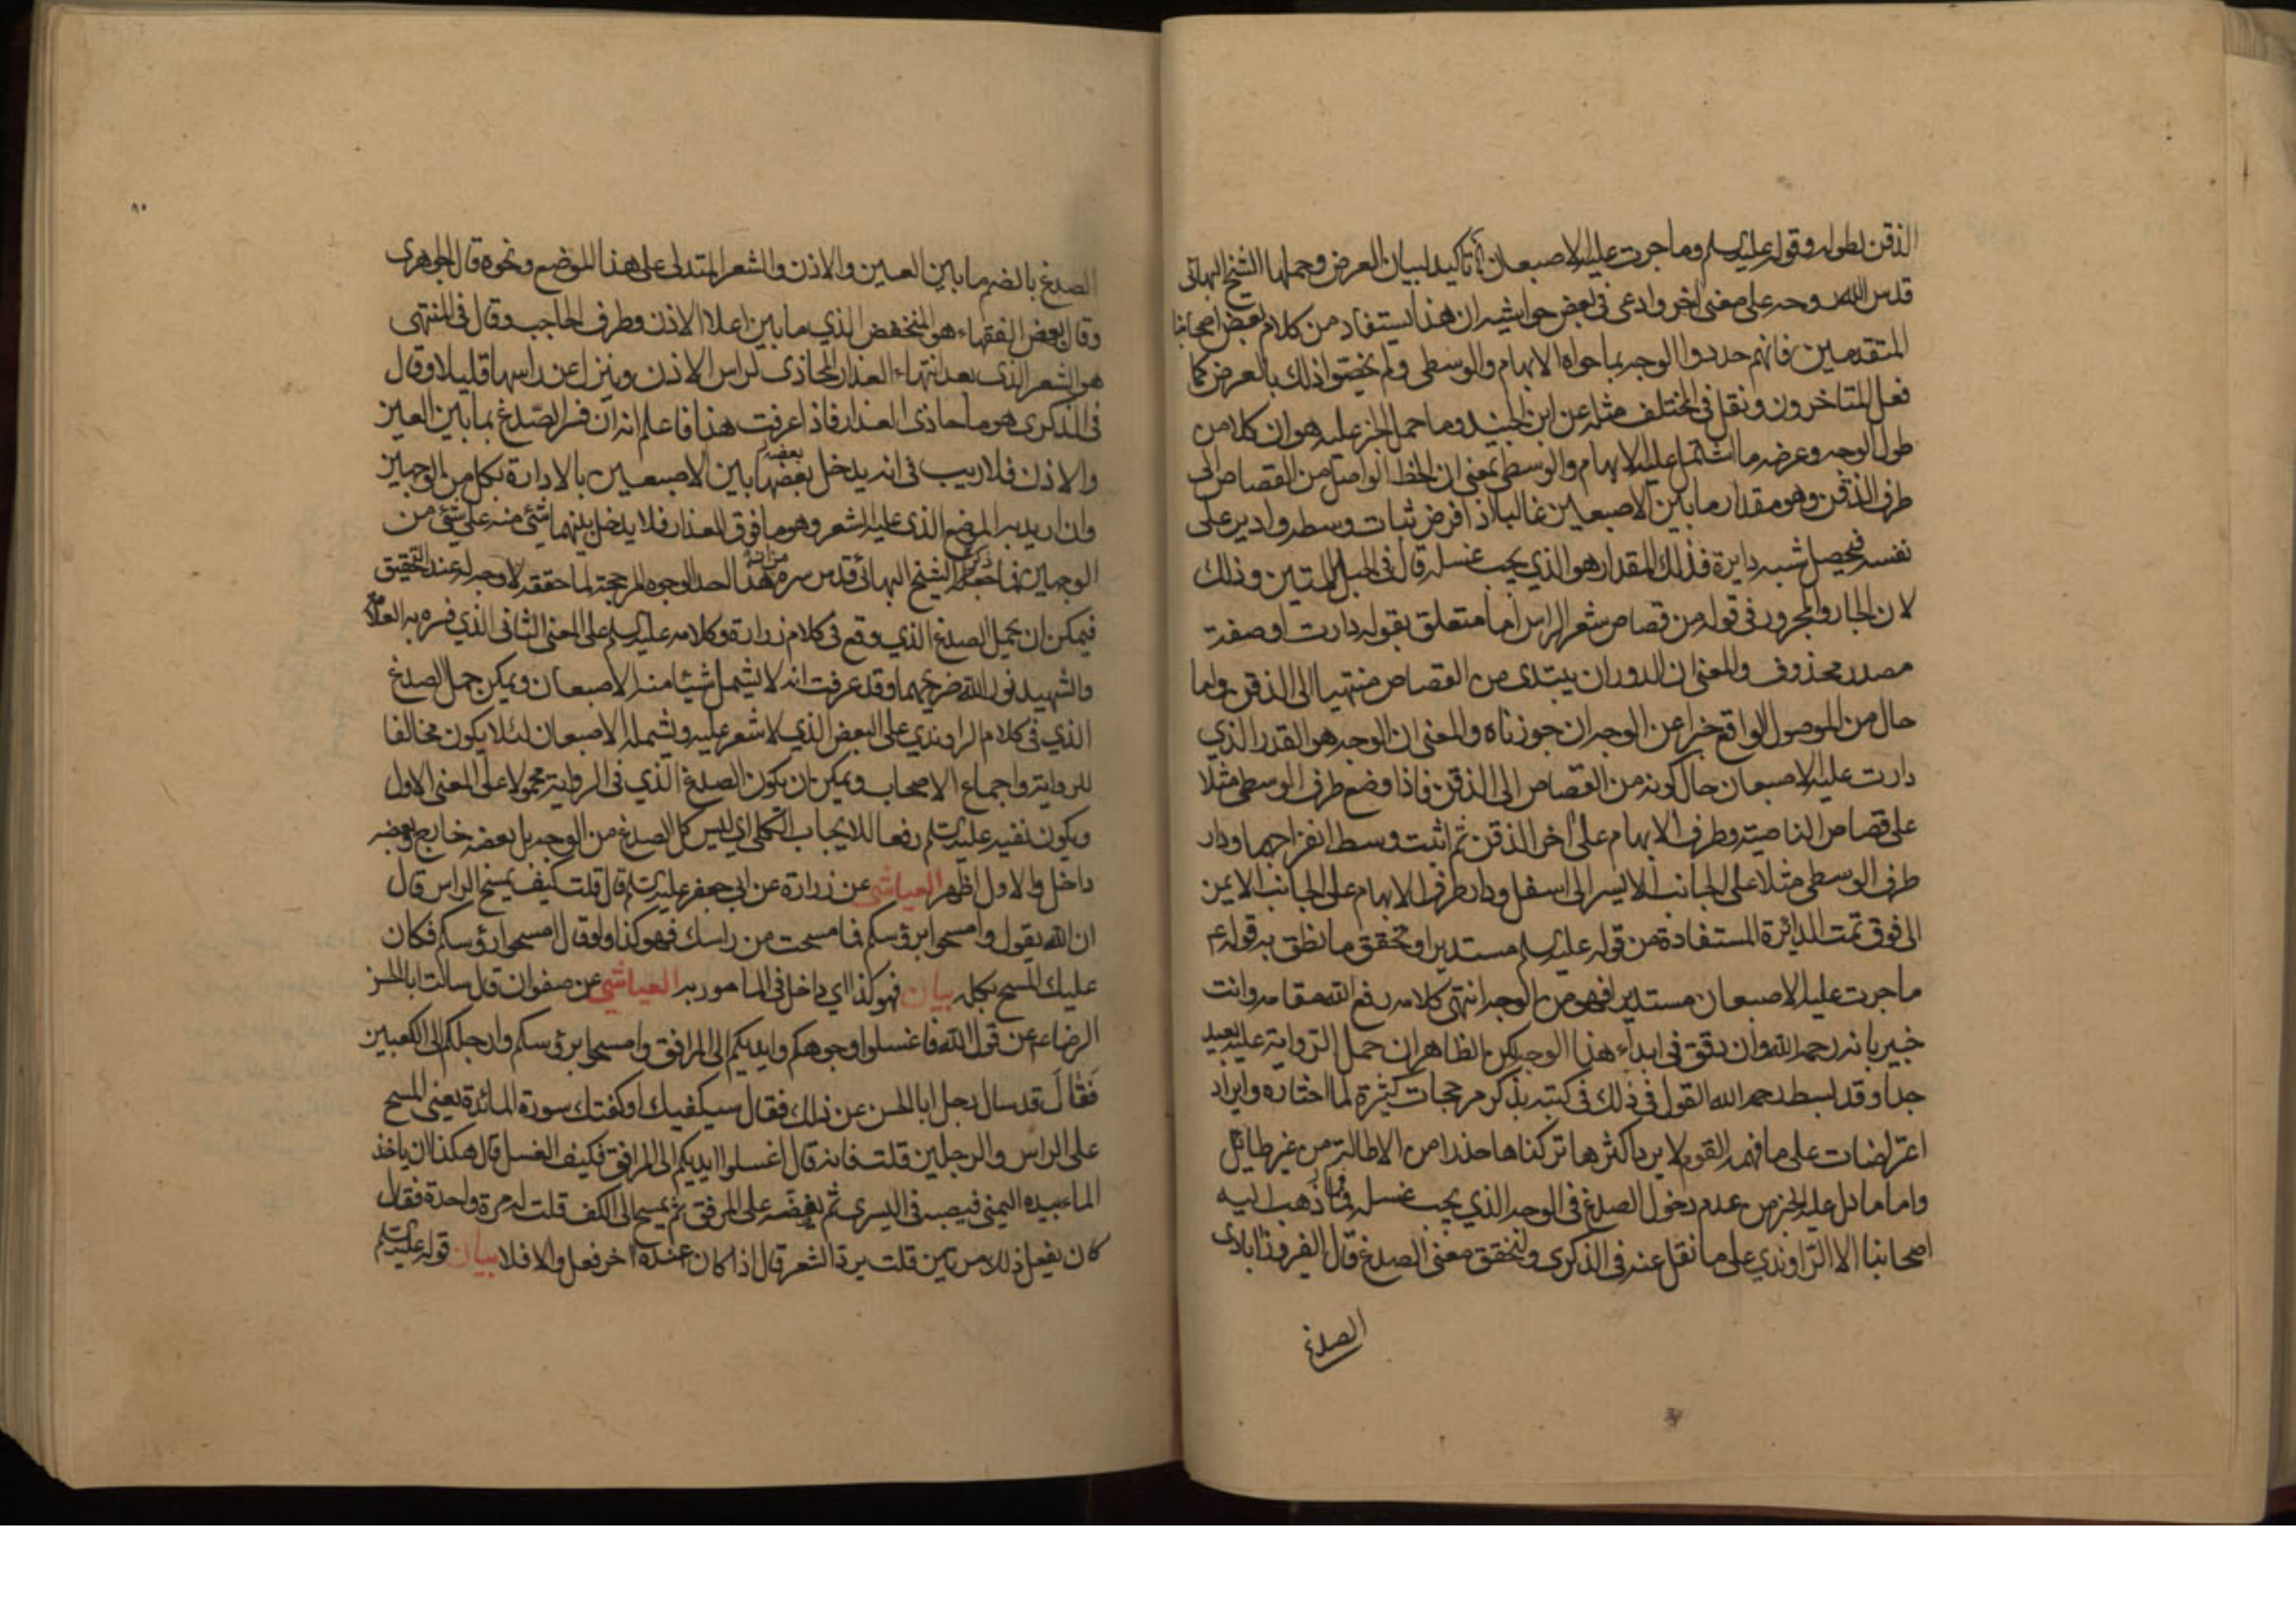 الذقن بطوله وقوله عليه السلم وما جرت عليه الاصبعان تاكيد لبيان العرض وحملها الشيخ البهائي
قدس الله روحه على معنى اخر وادعى في بعض حواشيه ان هذا يستفاد من كلام بعض اصحابنا
المتقدمين فانهم حددوا الوجه بما حواه الابهام والوسطى ولم يخصوا ذلك بالعرض كما
فعل المتاخرون ونقل في المختلف مثله عن ابن الجنيد وما حمل الخبر عليه هو ان كلا من
طول الوجه وعرضه ما اشتمل عليه الابهام والوسطى بمعنى ان الخط الواصل من القصاص الى
طرف الذقن وهو مقدار ما بين الاصبعين غالبا اذا فرض ثبات وسطه وادير على
نفسه فيحصل شبه دايرة فذلك المقدار هو الذي يجب غسله قال في الحبل المتين وذلك
لان الجار والمجرور في قوله من قصاص شعر الراس اما متعلق بقوله دارت او صفة
مصدر محذوف والمعنى ان الدوران يبتدى من القصاص منتهيا الى الذقن واما
حال من الموصول الواقع خبرا عن الوجه ان جوزناه والمعنى ان الوجه هو القدر الذي
دارت عليه الاصبعان حال كونه من القصاص الى الذقن فاذا وضع طرف الوسطى مثلا
على قصاص الناصية وطرف الابهام على آخر الذقن ثم اثبت وسط انفراجهما ودار
طرف الوسطى مثلا على الجانب الايسر الى اسفل ودار طرف الابهام على الجانب الايمن
الى فوق تمت الدائرة المستفادة من قوله عليه السلم مستديرا وتحقق ما نطق به قوله ع
ما جرت عليه الاصبعان مستديرا فهو من الوجه انتهى كلامه رفع الله مقامه وانت
خبير بانه رحمه الله وان دقق في ابداء هذا الوجه لكن الظاهر ان حمل الرواية عليه بعيد
جدا وقد بسط رحمه الله القول في ذلك في كتبه بذكر مرجحات كثيرة لما اختاره وايراد
اعتراضات على ما فهمه القوم لا يرد اكثرها تركناها حذرا من الاطالة من غير طائل
واما ما دل عليه الخبر من عدم دخول الصدغ في الوجه الذي يجب غسله فما ذهب اليه
اصحابنا الا الراوندي على ما نقل عنه في الذكرى ولنحقق معنى الصدغ قال الفيروزابادى
الصدغ
٩٠
الصدغ بالضم ما بين العين والاذن والشعر المتدلى على هذا الموضع ونحوه قال الجوهرى
وقال بعض الفقهاء هو المنخفض الذي ما بين اعلا الاذن وطرف الحاجب وقال في المنتهى
هو الشعر الذى بعد انتهاء العذار المحاذى لراس الاذن وينزل عن راسها قليلا وقال
في الذكرى هو ما حاذى العذار فاذا عرفت هذا فاعلم انه ان فسر الصدغ بما بين العين
والاذن فلا ريب في انه يدخل بعضها بعضه بين الاصبعين بالادارة بكل من الوجهين
وان اريد به الموضع الذى عليه الشعر وهو ما فوق العذار فلا يدخل بينهما شئ منه على شئ من
الوجهين فما ذكره الشيخ البهائي قدس سره من ان هذا احد الوجوه المرجحة لما حققه لا وجه له عند التحقيق
فيمكن ان يحمل الصدغ الذي وقع في كلام زرارة وكلامه عليه السلم على المعنى الثاني الذي فسره به العلامة
والشهيد نور الله ضريحهما وقد عرفت انه لا يشمل شيئا منه الاصبعان ويمكن حمل الصدغ
الذي في كلام الراوندي على البعض الذي لا شعر عليه ويشمله الاصبعان لئلا يكون مخالفا
للرواية واجماع الاصحاب ويمكن ان يكون الصدغ الذي في الرواية محمولا على المعنى الاول
ويكون نفيه عليه السلم رفعا للايجاب الكلى اي ليس كل الصدغ من الوجه بل بعضه خارج وبعضه
داخل والاول اظهر العياشي عن زرارة عن ابي جعفر عليه السلم قال قلت كيف يمسح الراس قال
ان الله يقول وامسحوا برؤسكم فما مسحت من راسك فهو كذا ولو قال امسحوا رؤسكم فكان
عليك المسح بكله بيان فهو كذا اي داخل في المامور به العياشي عن صفوان قال سالت ابا الحسن
الرضا ع عن قول الله فاغسلوا وجوهكم وايديكم الى المرافق وامسحوا برؤسكم وارجلكم الى الكعبين
فقال قد سال رجل ابا الحسن عن ذلك فقال سيكفيك او كفتك سورة المائدة يعنى المسح
على الراس والرجلين قلت فانه قال اغسلوا ايديكم الى المرافق فكيف الغسل قال هكذا ان ياخذ
الماء بيده اليمنى فيصبه في اليسرى ثم يفضه على المرفق ثم يمسح الى الكف قلت له مرة واحدة فقال
كان يفعل ذلك مرتين قلت يرد الشعر قال اذا كان عنده آخر فعل والا فلا بيان قوله عليه السلم